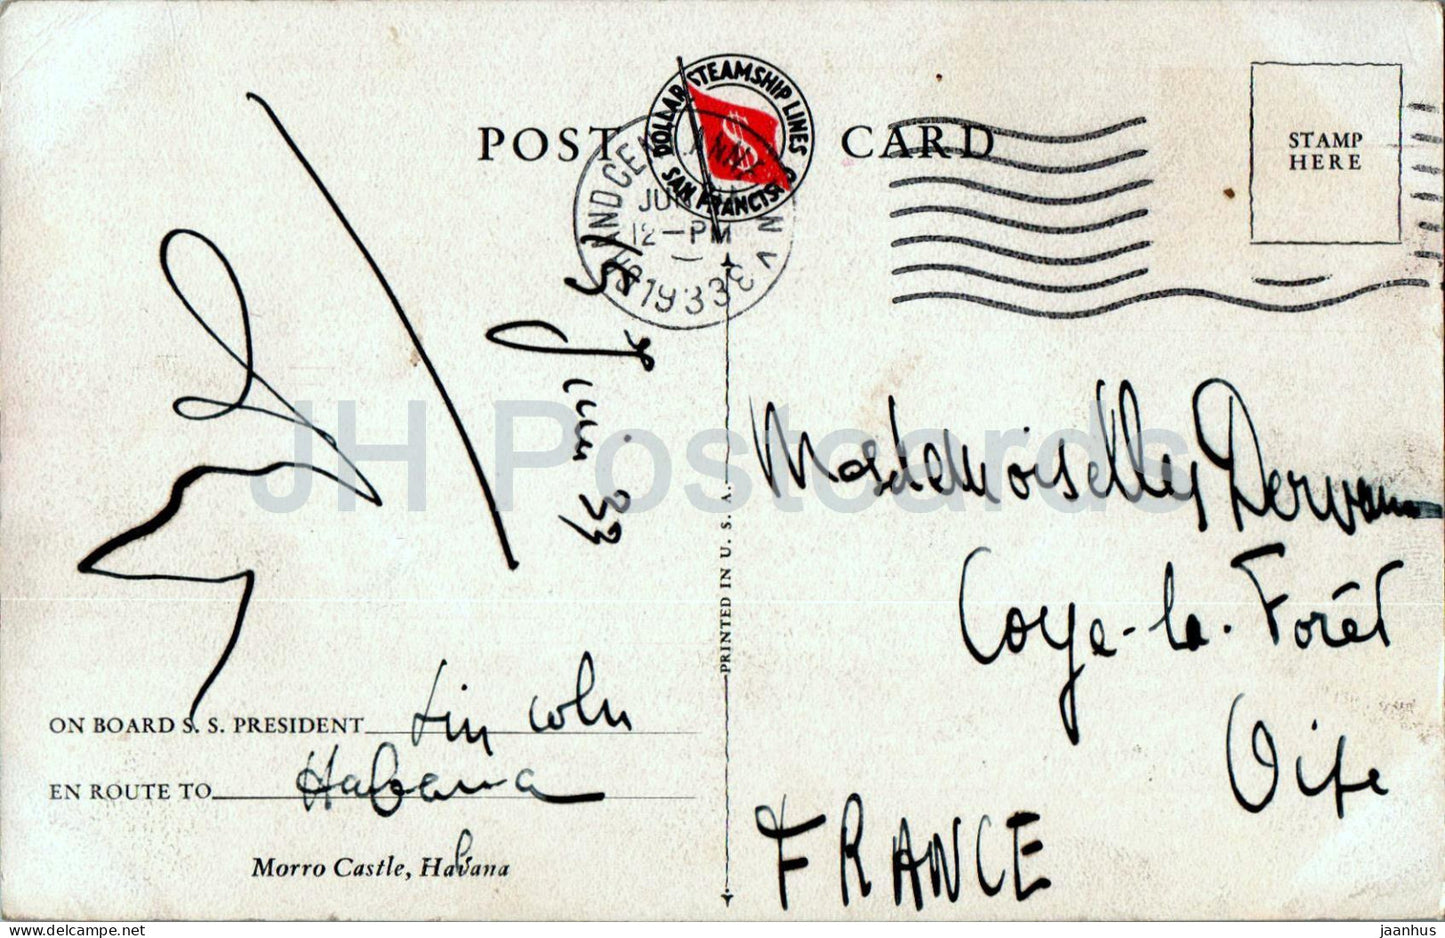 POST CARD
DOLLAR STEAMSHIP LINES
SAN FRANCISCO
STAMP
HERE
12-PM
1933
Juin 33
Mesdemoiselles Dervaux
Coye-la-Forêt
Oise
FRANCE
PRINTED IN U. S. A.
ON BOARD S. S. PRESIDENT Lincoln
EN ROUTE TO Habana
Morro Castle, Habana
JH Postcards
www.delcampe.net
jaanhus